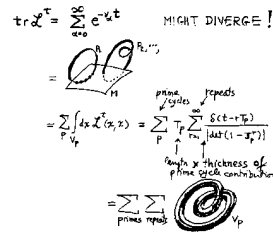 tr 𝓛^τ = Σ_{α=0}^{∞} e^{-ν_α t} MIGHT DIVERGE !
=
M
= Σ_P ∫_{V_P} dx 𝓛^τ(x,x) = Σ_P T_P Σ_{r=1}^{∞} δ(t-rT_P) / |det(1-J_P^r)|
prime cycles
repeats
length x thickness of
prime cycle contribution
= Σ_{primes} Σ_{repeats} V_P